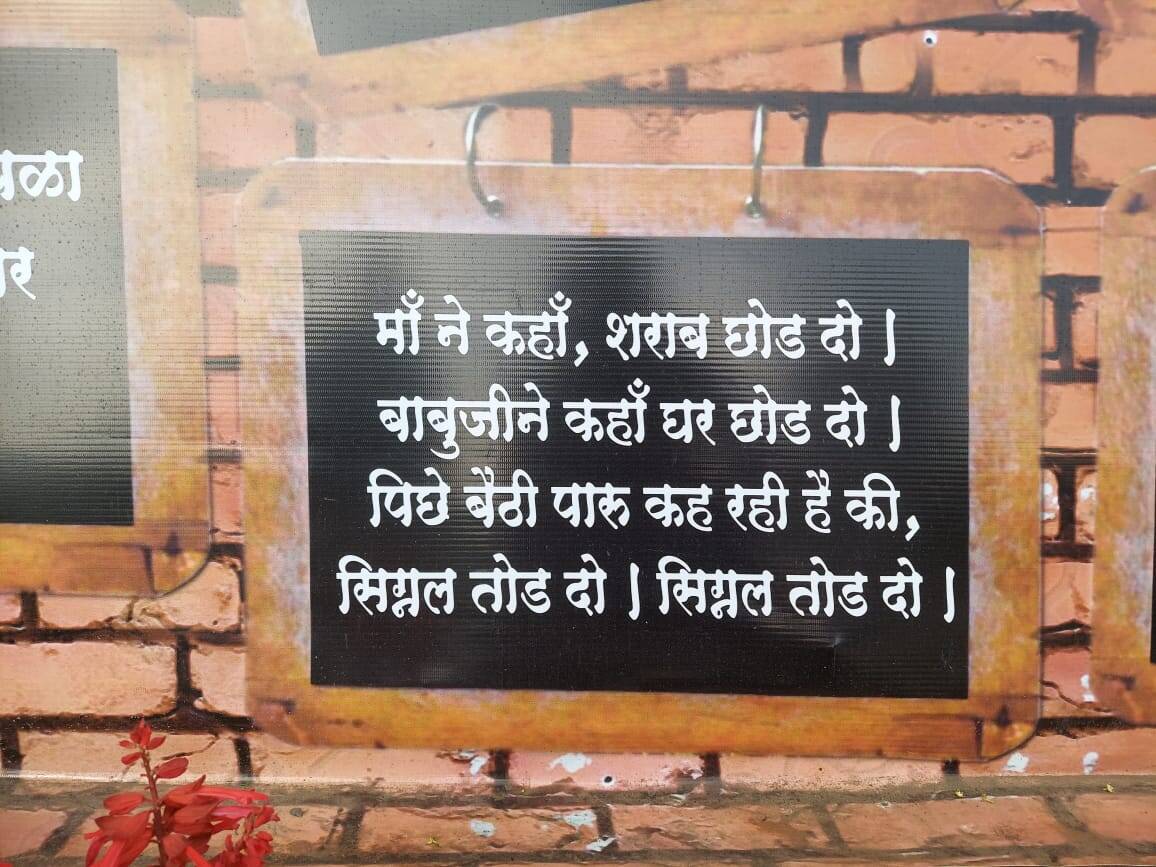 माँ ने कहाँ, शराब छोड दो |
बाबुजीने कहाँ घर छोड दो |
पिछे बैठी पारू कह रही है की,
सिग्नल तोड दो | सिग्नल तोड दो |